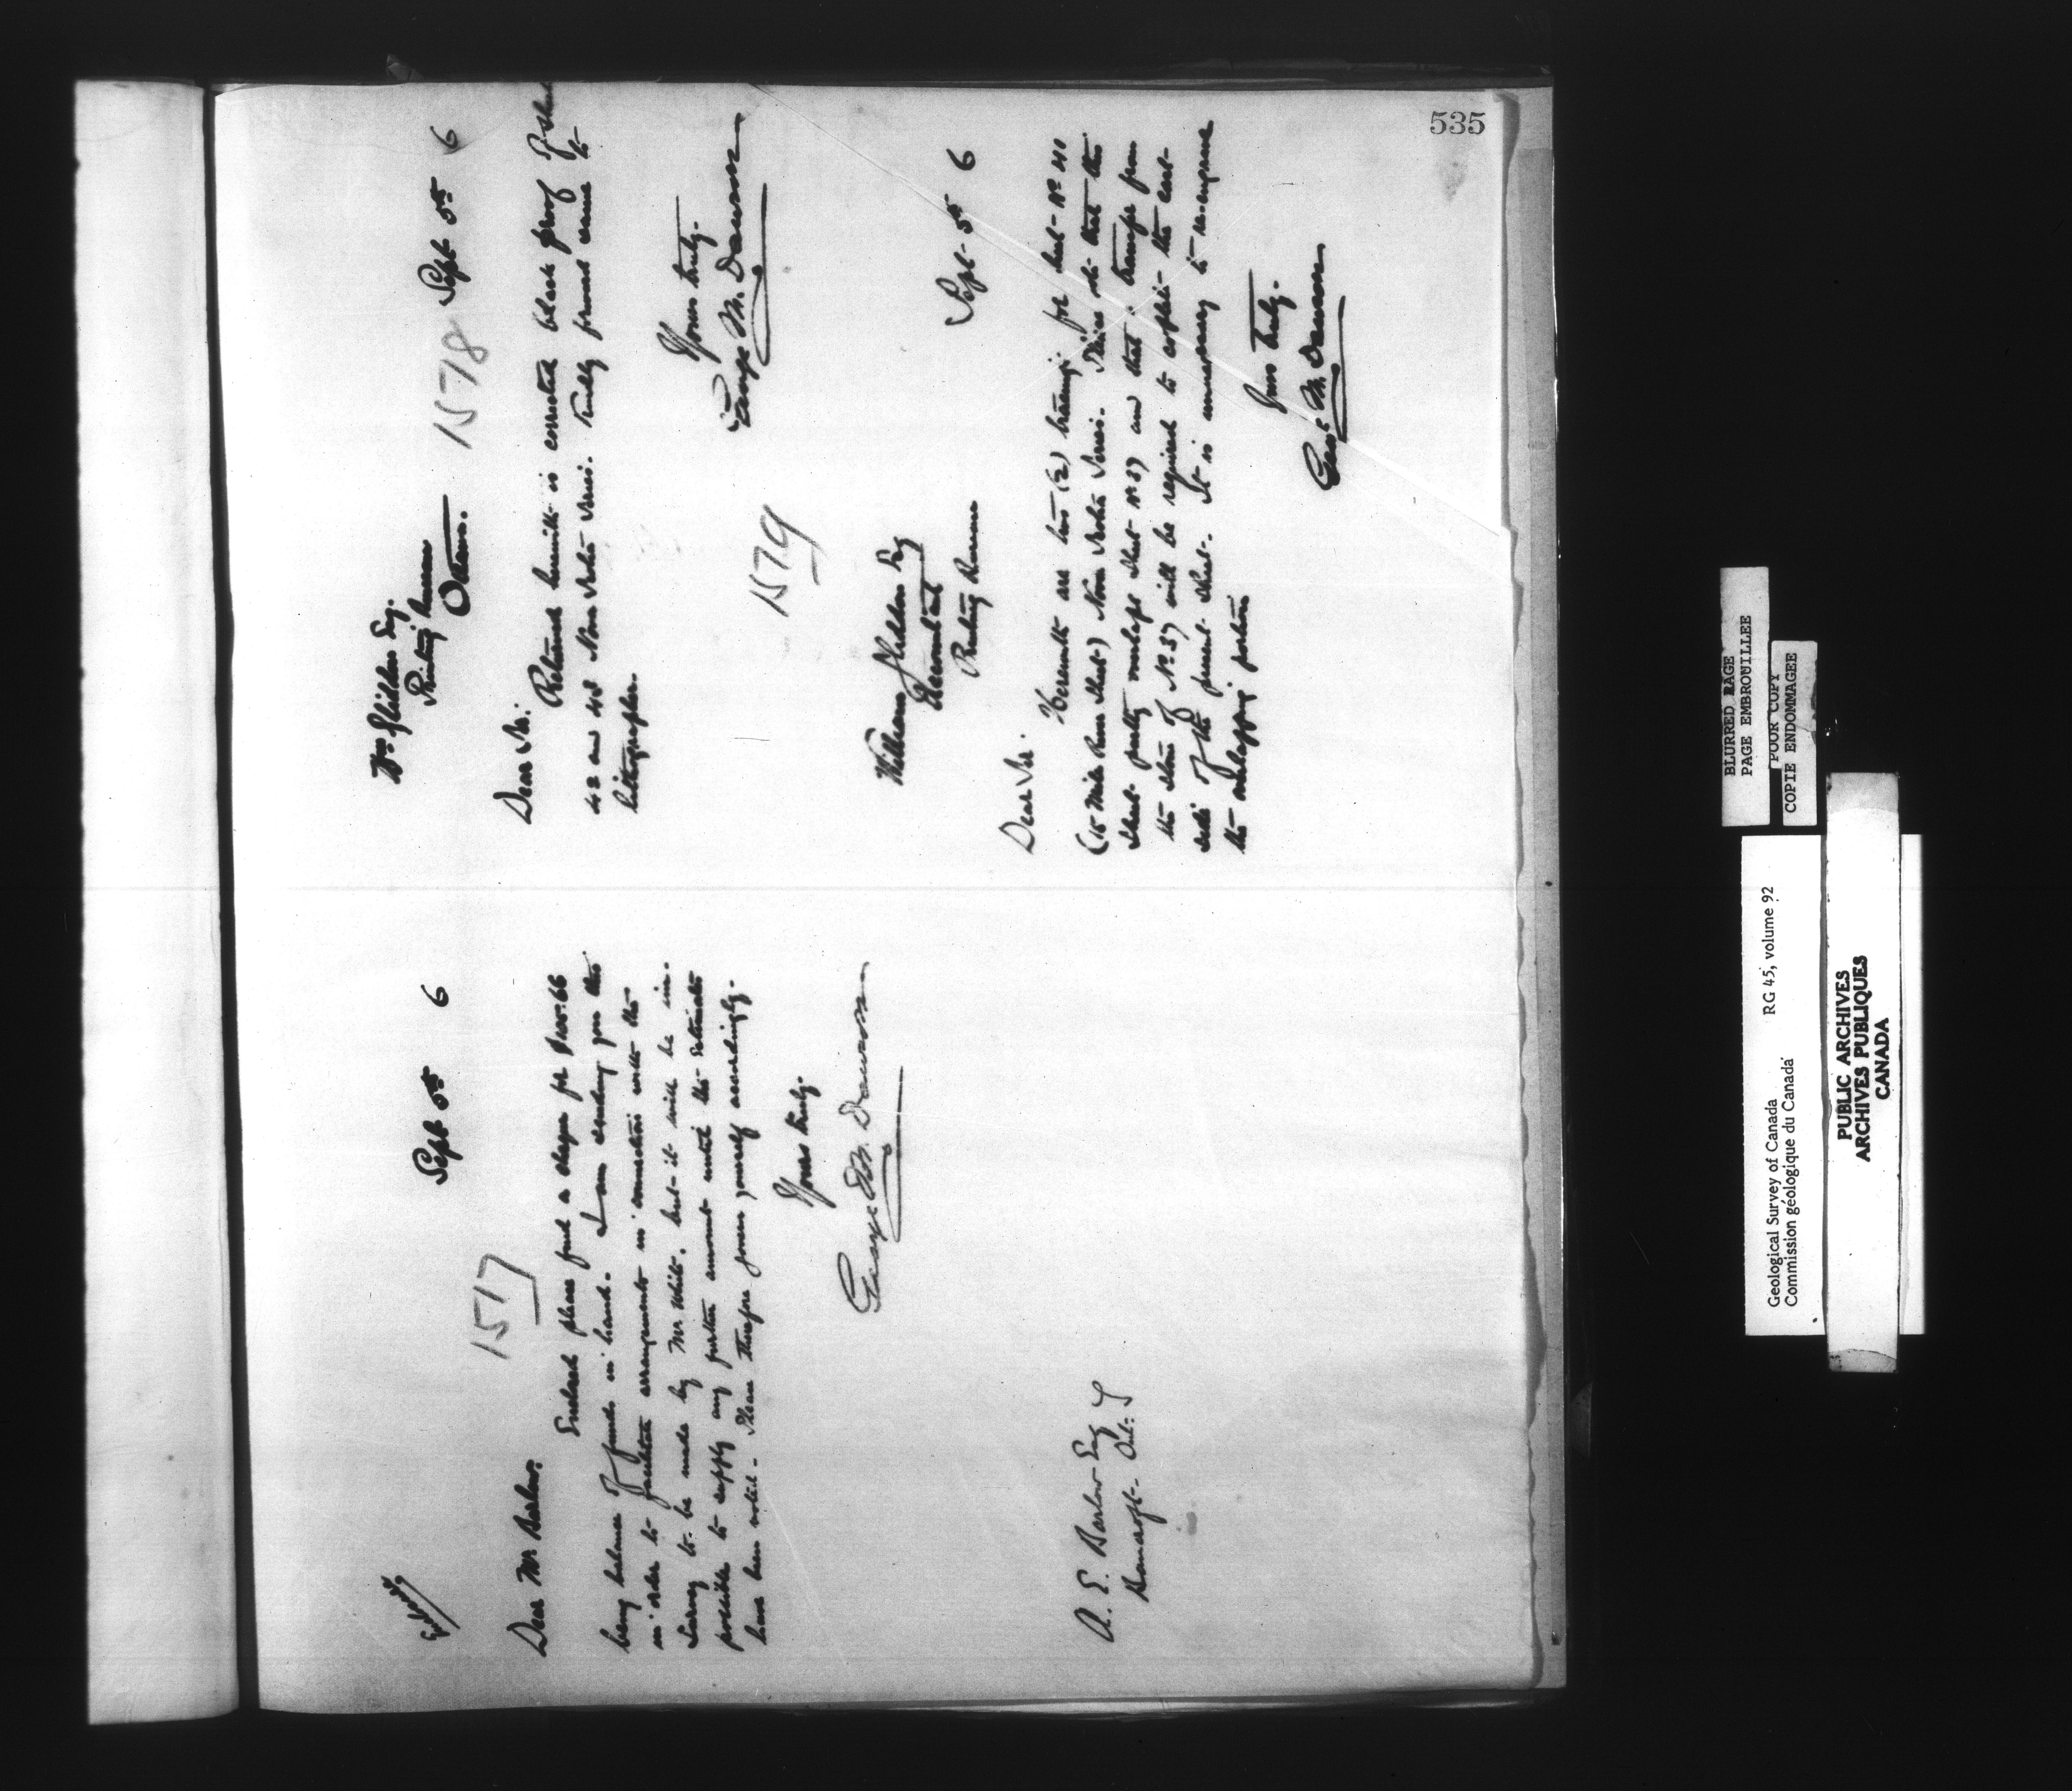 535
Sept 5th 6
1517
Dear Mr Barlow.
Enclosed please find a cheque for $105.66
being balance of funds in hand. I am sending you this
in order to facilitate arrangements in connection with the
Survey to be made by Mr White, but it will be im-
possible to supply any further amount until the Estimates
have been voted. Please therefore govern yourself accordingly.
Yours truly.
George M. Dawson
A. E. Barlow Esq
Bancroft Ont.
Wm Esq.
Printing Bureau
Ottawa.
1578
Sept 5th 6
Dear Sir:
Returned herewith is corrected black proof of sheets
42 and 48 Nova Scotia Series. Kindly forward same to
lithographer.
Yours truly.
George M. Dawson
1579
Sept 5th 6
William Esq
Accountant
Printing Bureau
Dear Sir.
Herewith are two (2) tracings for sheet No 41
(15 Mile River Sheet) Nova Scotia Series. Please note that this
sheet partly overlaps sheet No 37 and that a transfer from
the stone of No 37 will be required to complete the east
side of the present sheet. It is unnecessary to re-engrave
the overlapping portion
Yours truly.
George M. Dawson
BLURRED PAGE
PAGE EMBROUILLEE
POOR COPY
COPIE ENDOMMAGEE
Geological Survey of Canada RG 45, volume 92
Commission géologique du Canada
PUBLIC ARCHIVES
ARCHIVES PUBLIQUES
CANADA